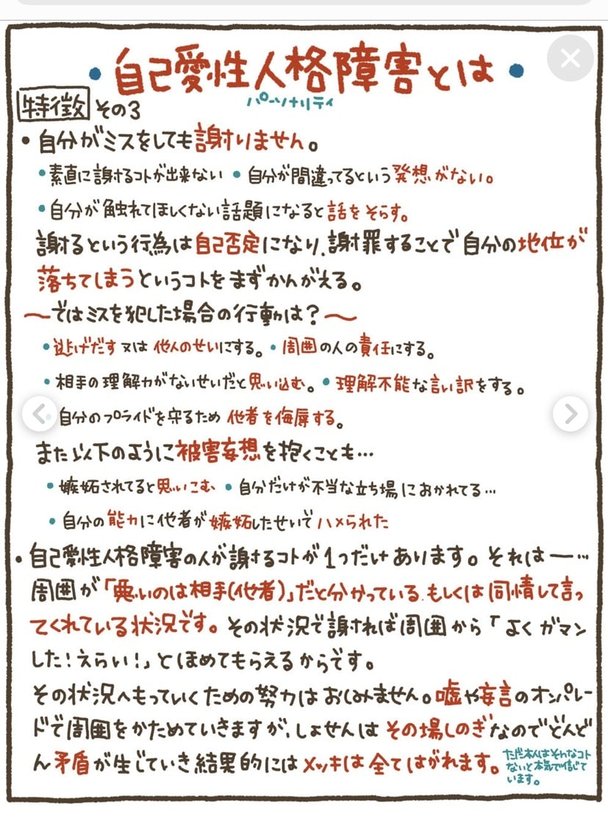 • 自己愛性人格障害とは •
パーソナリティ
特徴 その3
• 自分がミスをしても謝りません。
• 素直に謝するコトが出来ない • 自分が間違ってるという発想がない。
• 自分が触れてほしくない話題になると話をそらす。
謝るという行為は自己否定になり、謝罪することで自分の地位が
落ちてしまうというコトをまずかんがえる。
〜ではミスを犯した場合の行動は？〜
• 逃げだす又は他人のせいにする。• 周囲の人の責任にする。
• 相手の理解力がないせいだと思い込む。• 理解不能な言い訳をする。
自分のプライドを守るため他者を侮辱する。
また以下のように被害妄想を抱くことも…
• 嫉妬されてると思いこむ • 自分だけが不当な立ち場におかれてる…
• 自分の能力に他者が嫉妬したせいでハメられた
• 自己愛性人格障害の人が謝するコトが1つだけあります。それは一…
周囲が「悪いのは相手(他者)」だと分かっている、もしくは同情して言っ
てくれている状況です。その状況で謝れば周囲から「よくガマン
した！えらい！」とほめてもらえるからです。
その状況へもっていくための努力はおしみません。嘘や妄言のオンパレー
ドで周囲をかためていきますが、しょせんはその場しのぎなのでどんど
ん矛盾が生じていき結果的にはメッキは全てはがれます。
ただ本人はそんなコト
ないと本気で信じて
います。